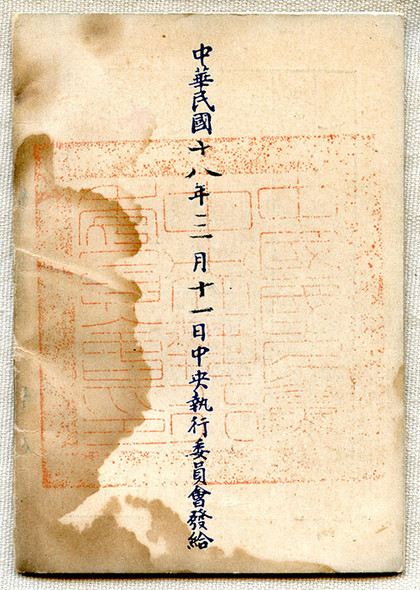 中華民國十八年三月十一日中央執行委員會發給